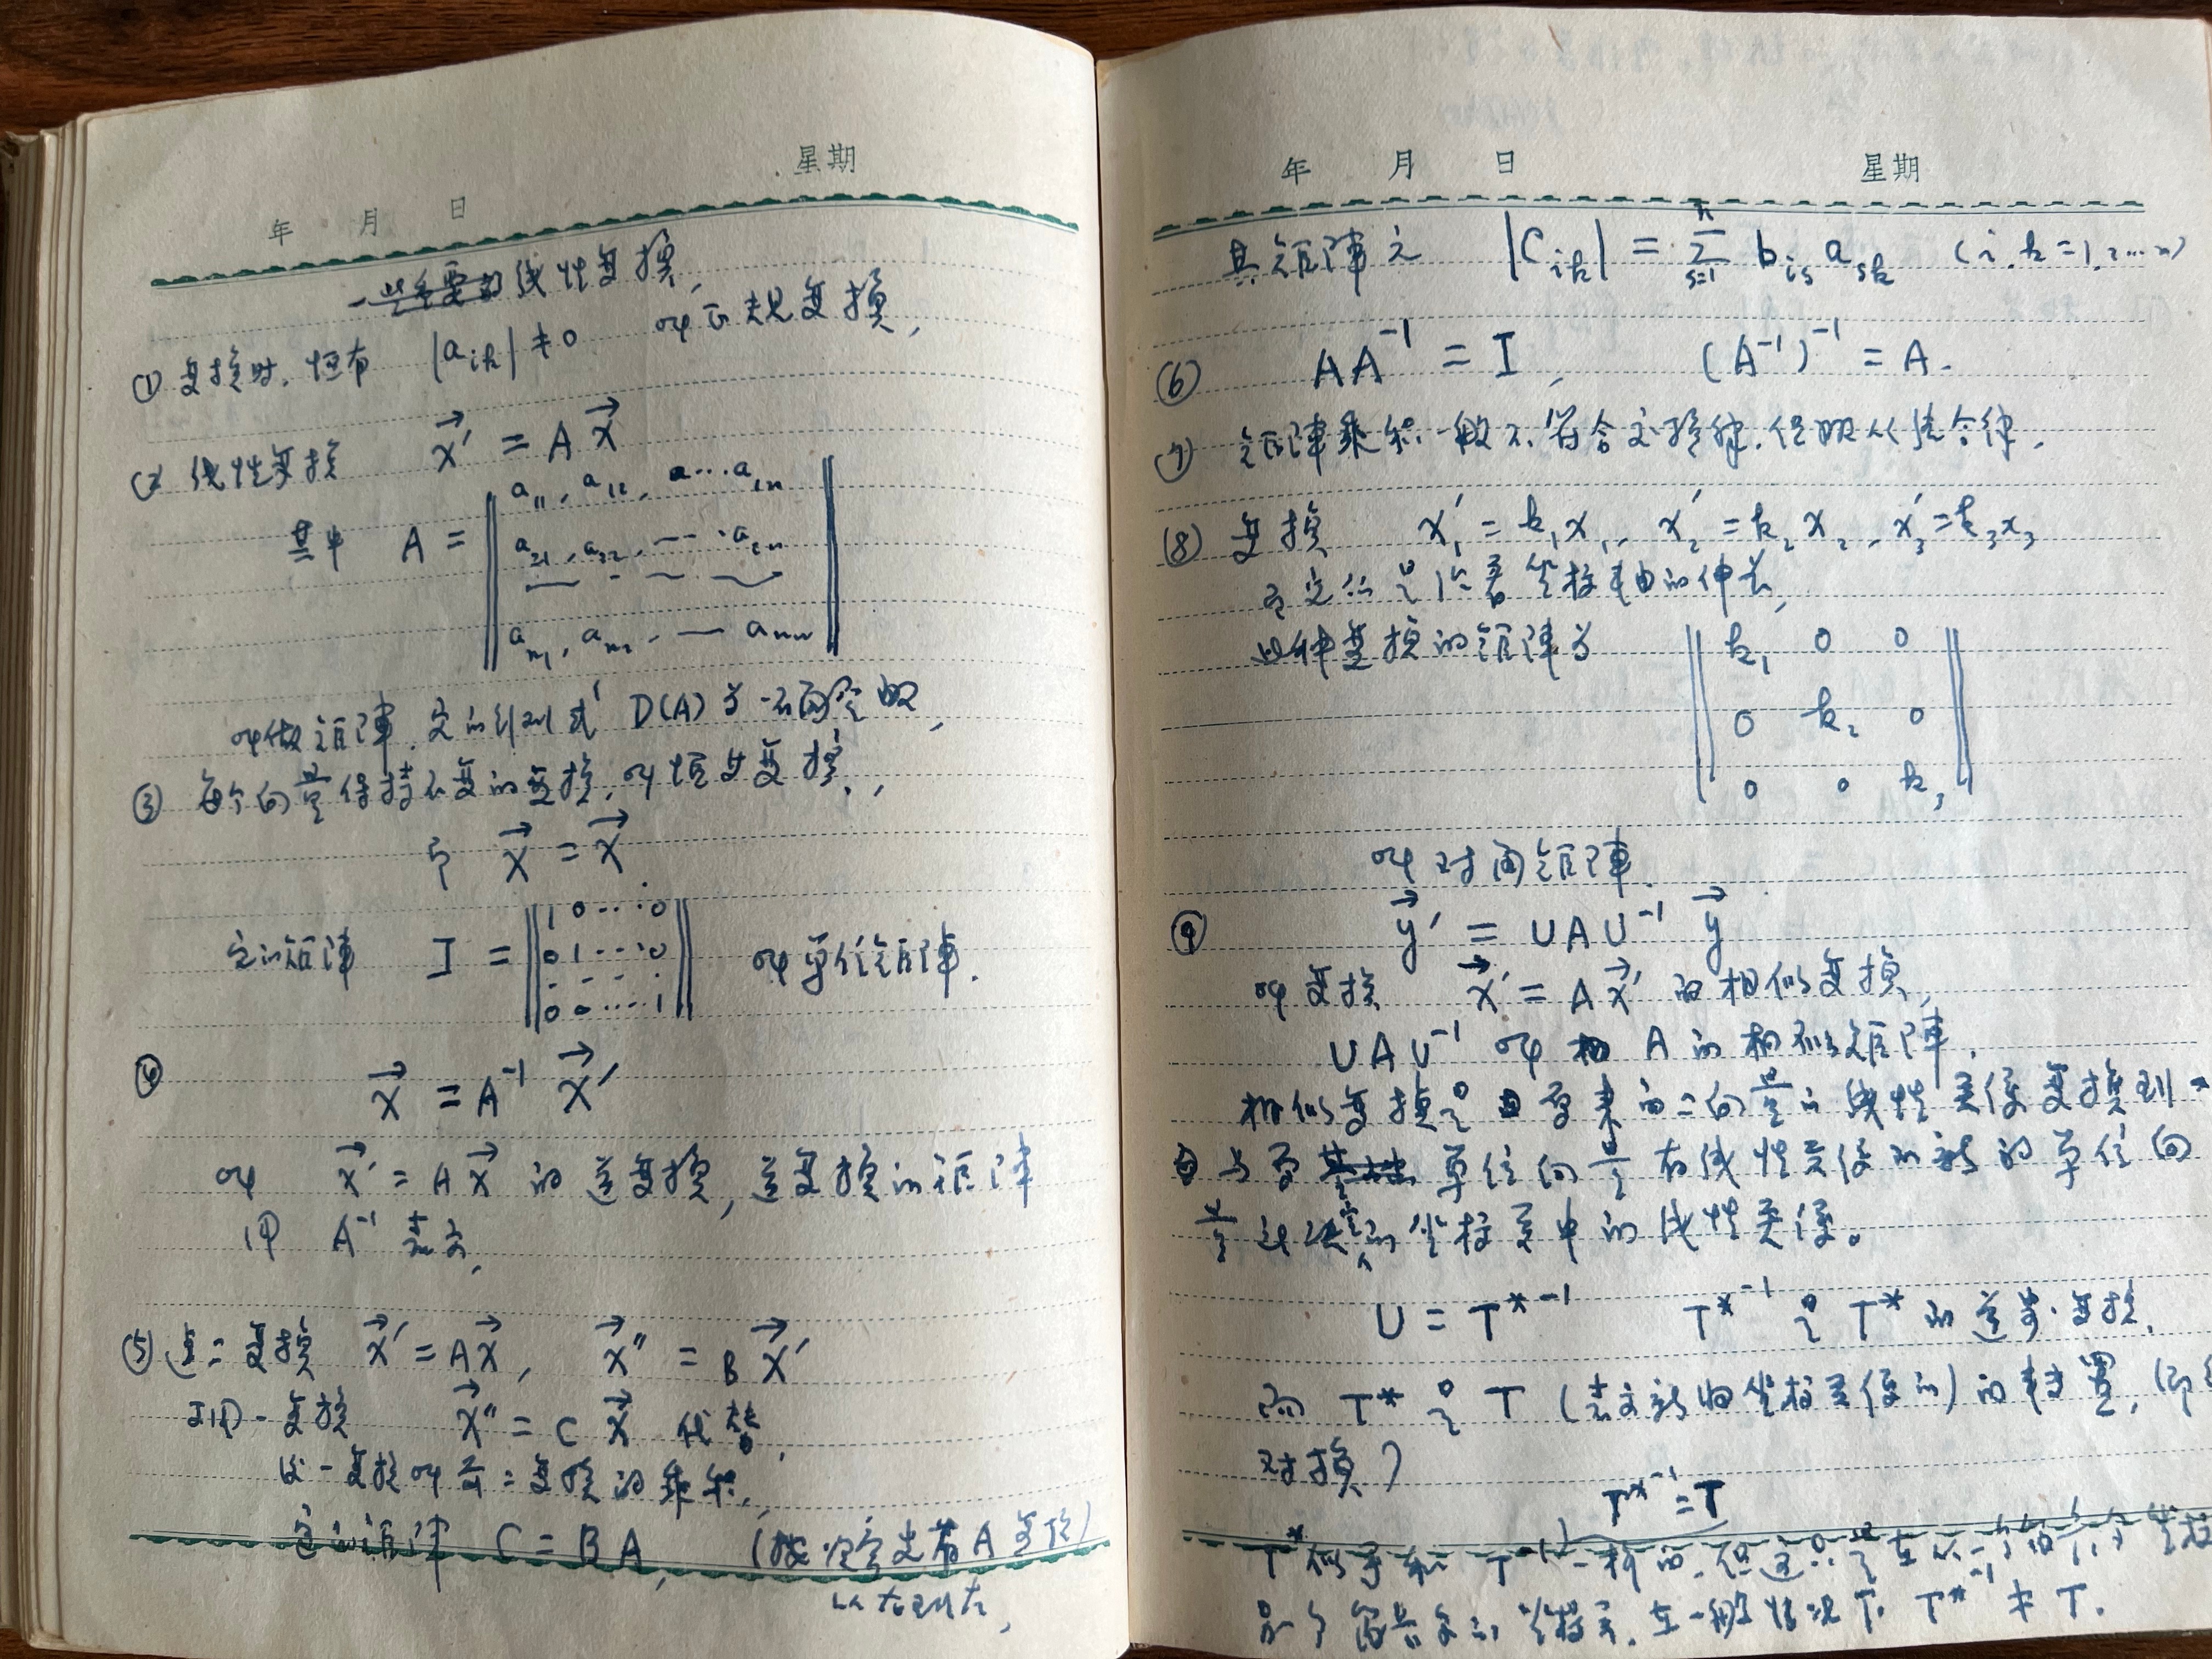 年 月 日 星期
线性变换,
① 变换时, 恒有 |aik| ≠ 0 叫正规变换,
② 线性变换 x⃗′ = A x⃗
其中 A = ‖ a11, a12, a···a1n
a21, a22, — ·a2n
an1, an2, — ann ‖
叫做矩陣, 它的行列式 D(A) 为一不为零的
③ 每个向量保持不变的变换, 叫恒等变换,
即 x⃗ = x⃗
它的矩陣 I = ‖ 1 0 ··· 0
0 1 ··· 0
- - - ·
0 0 ··· 1 ‖ 叫单位矩陣.
④ x⃗ = A⁻¹ x⃗′
叫 x⃗′ = A x⃗ 的逆变换, 逆变换的矩陣
用 A⁻¹ 表示,
⑤ 连二变换 x⃗′ = A x⃗, x⃗″ = B x⃗′
可用一变换 x⃗″ = C x⃗ 代替,
这一变换叫前二变换的乘积,
它的矩陣 C = B A, (
从右到左,
年 月 日 星期
其矩陣之 |Cik| = Σ(s=1→n) bis ask (i.k = 1,2...n)
⑥ AA⁻¹ = I, (A⁻¹)⁻¹ = A.
⑦ 矩陣乘积一般不符合交换律, 但服从结合律,
⑧ 变换 x1′ = k1x1, x2′ = k2x2, x3′ = k3x3
是沿着坐标轴的伸长,
此种变换的矩陣为 ‖ k1 0 0
0 k2 0
0 0 k3 ‖
叫对角矩陣
⑨ y⃗′ = UAU⁻¹ y⃗
叫变换 x⃗′ = A x⃗′ 的相似变换,
UAU⁻¹ 叫 A 的相似矩陣.
相似变换是由原来的二向量的线性关係变换到
与原 单位向量有线性关係的新的单位向
量所决定的坐标系中的线性关係。
U = T*⁻¹ T*⁻¹ 是 T* 的逆变换,
而 T* 是 T (表示新旧坐标关係的) 的转置, (即
对换)
T*⁻¹ = T
T* 似乎和 T⁻¹ 一样的, 但这只是在
坐标系, 在一般情况下 T*⁻¹ ≠ T.